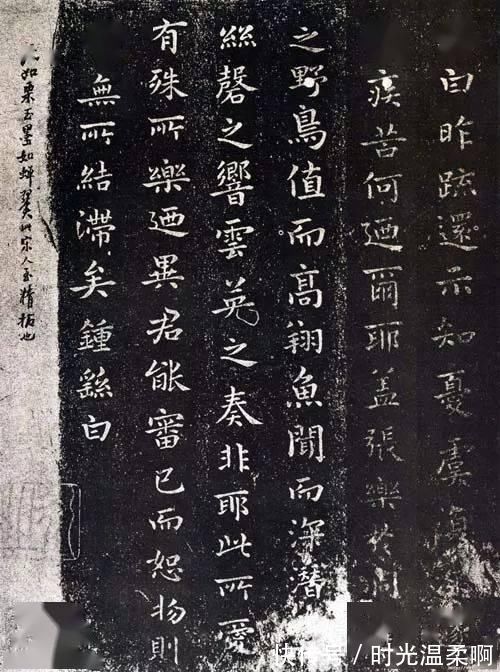 白昨疏還示知憂虞復
疾苦何迺爾耶蓋張樂於洞
之野鳥值而高翔魚聞而深潛
絲磬之響雲英之奏非耶此所愛
有殊所樂迺異君能審己而恕物則
無所結滯矣鍾繇白
如粟玉墨如蟬翼此宋人至精拓也
快传号 / 时光温柔啊